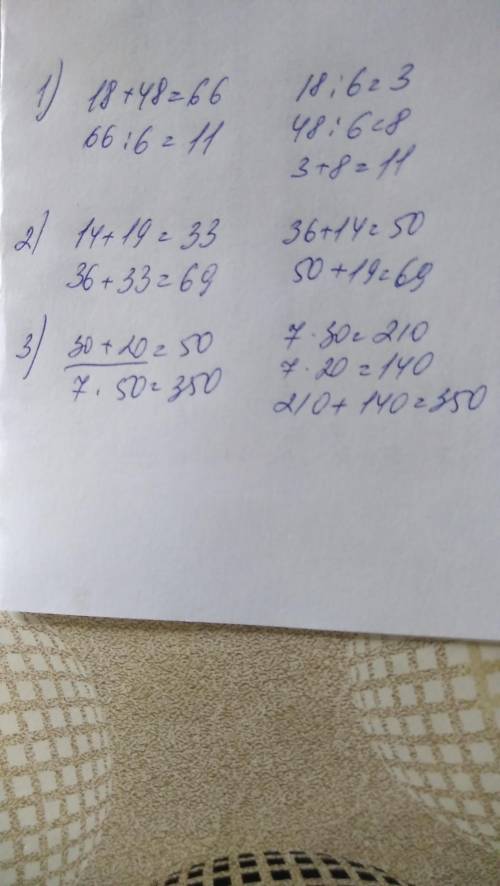 1) 18+48=66 18:6=3
66:6=11 48:6=8
3+8=11
2) 14+19=33 36+14=50
36+33=69 50+19=69
3) 30+20=50 7·30=210
7·50=350 7·20=140
210+140=350